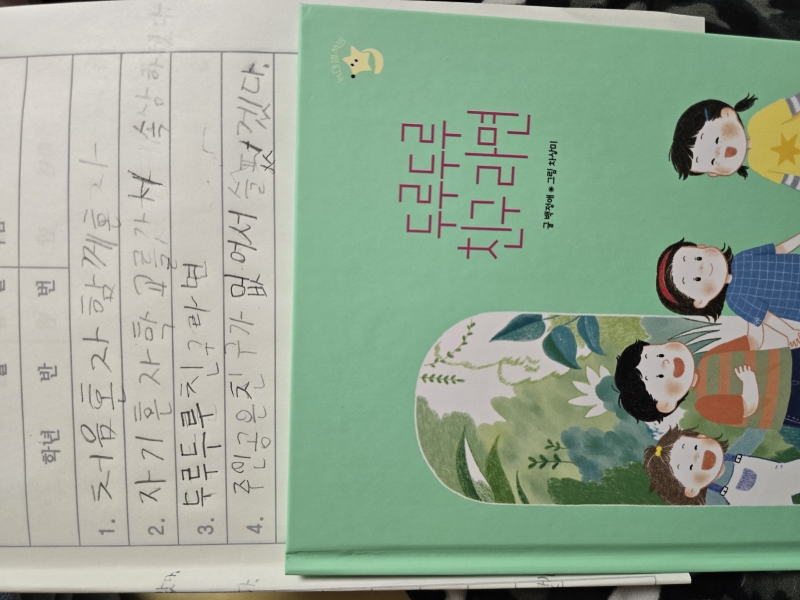 학년 반 번
1. 처음혼자함께혼자
2. 자기혼자학교를가서 속상하였다.
3. 두루두루친구라면
4. 주인공은친구가 없어서 슬펐겠다.
두루두루
친구라면
글 백정애 ● 그림 차상미